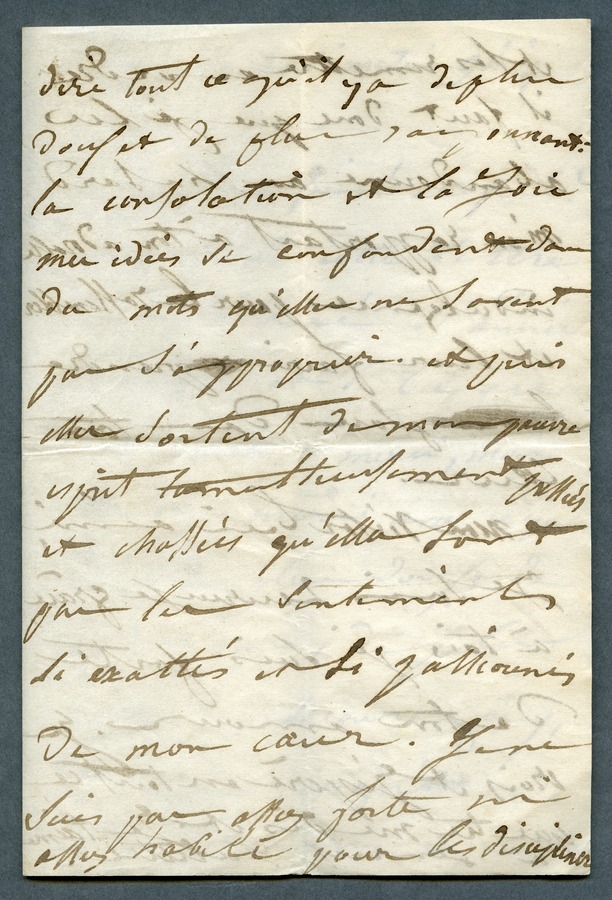 dire tout ce qu'il y a de plus
doux et de plus
la consolation et la Joie
mes idées se confondent dans
des mots qu'elles ne savent
pas s'approprier. et puis
elles sortent de mon pauvre
esprit tumultueusement
et chassées qu'elles sont
par les sentiments
si exaltés et si passionnés
de mon cœur. Je ne
suis pas assez forte ni
assez habile pour les discipliner